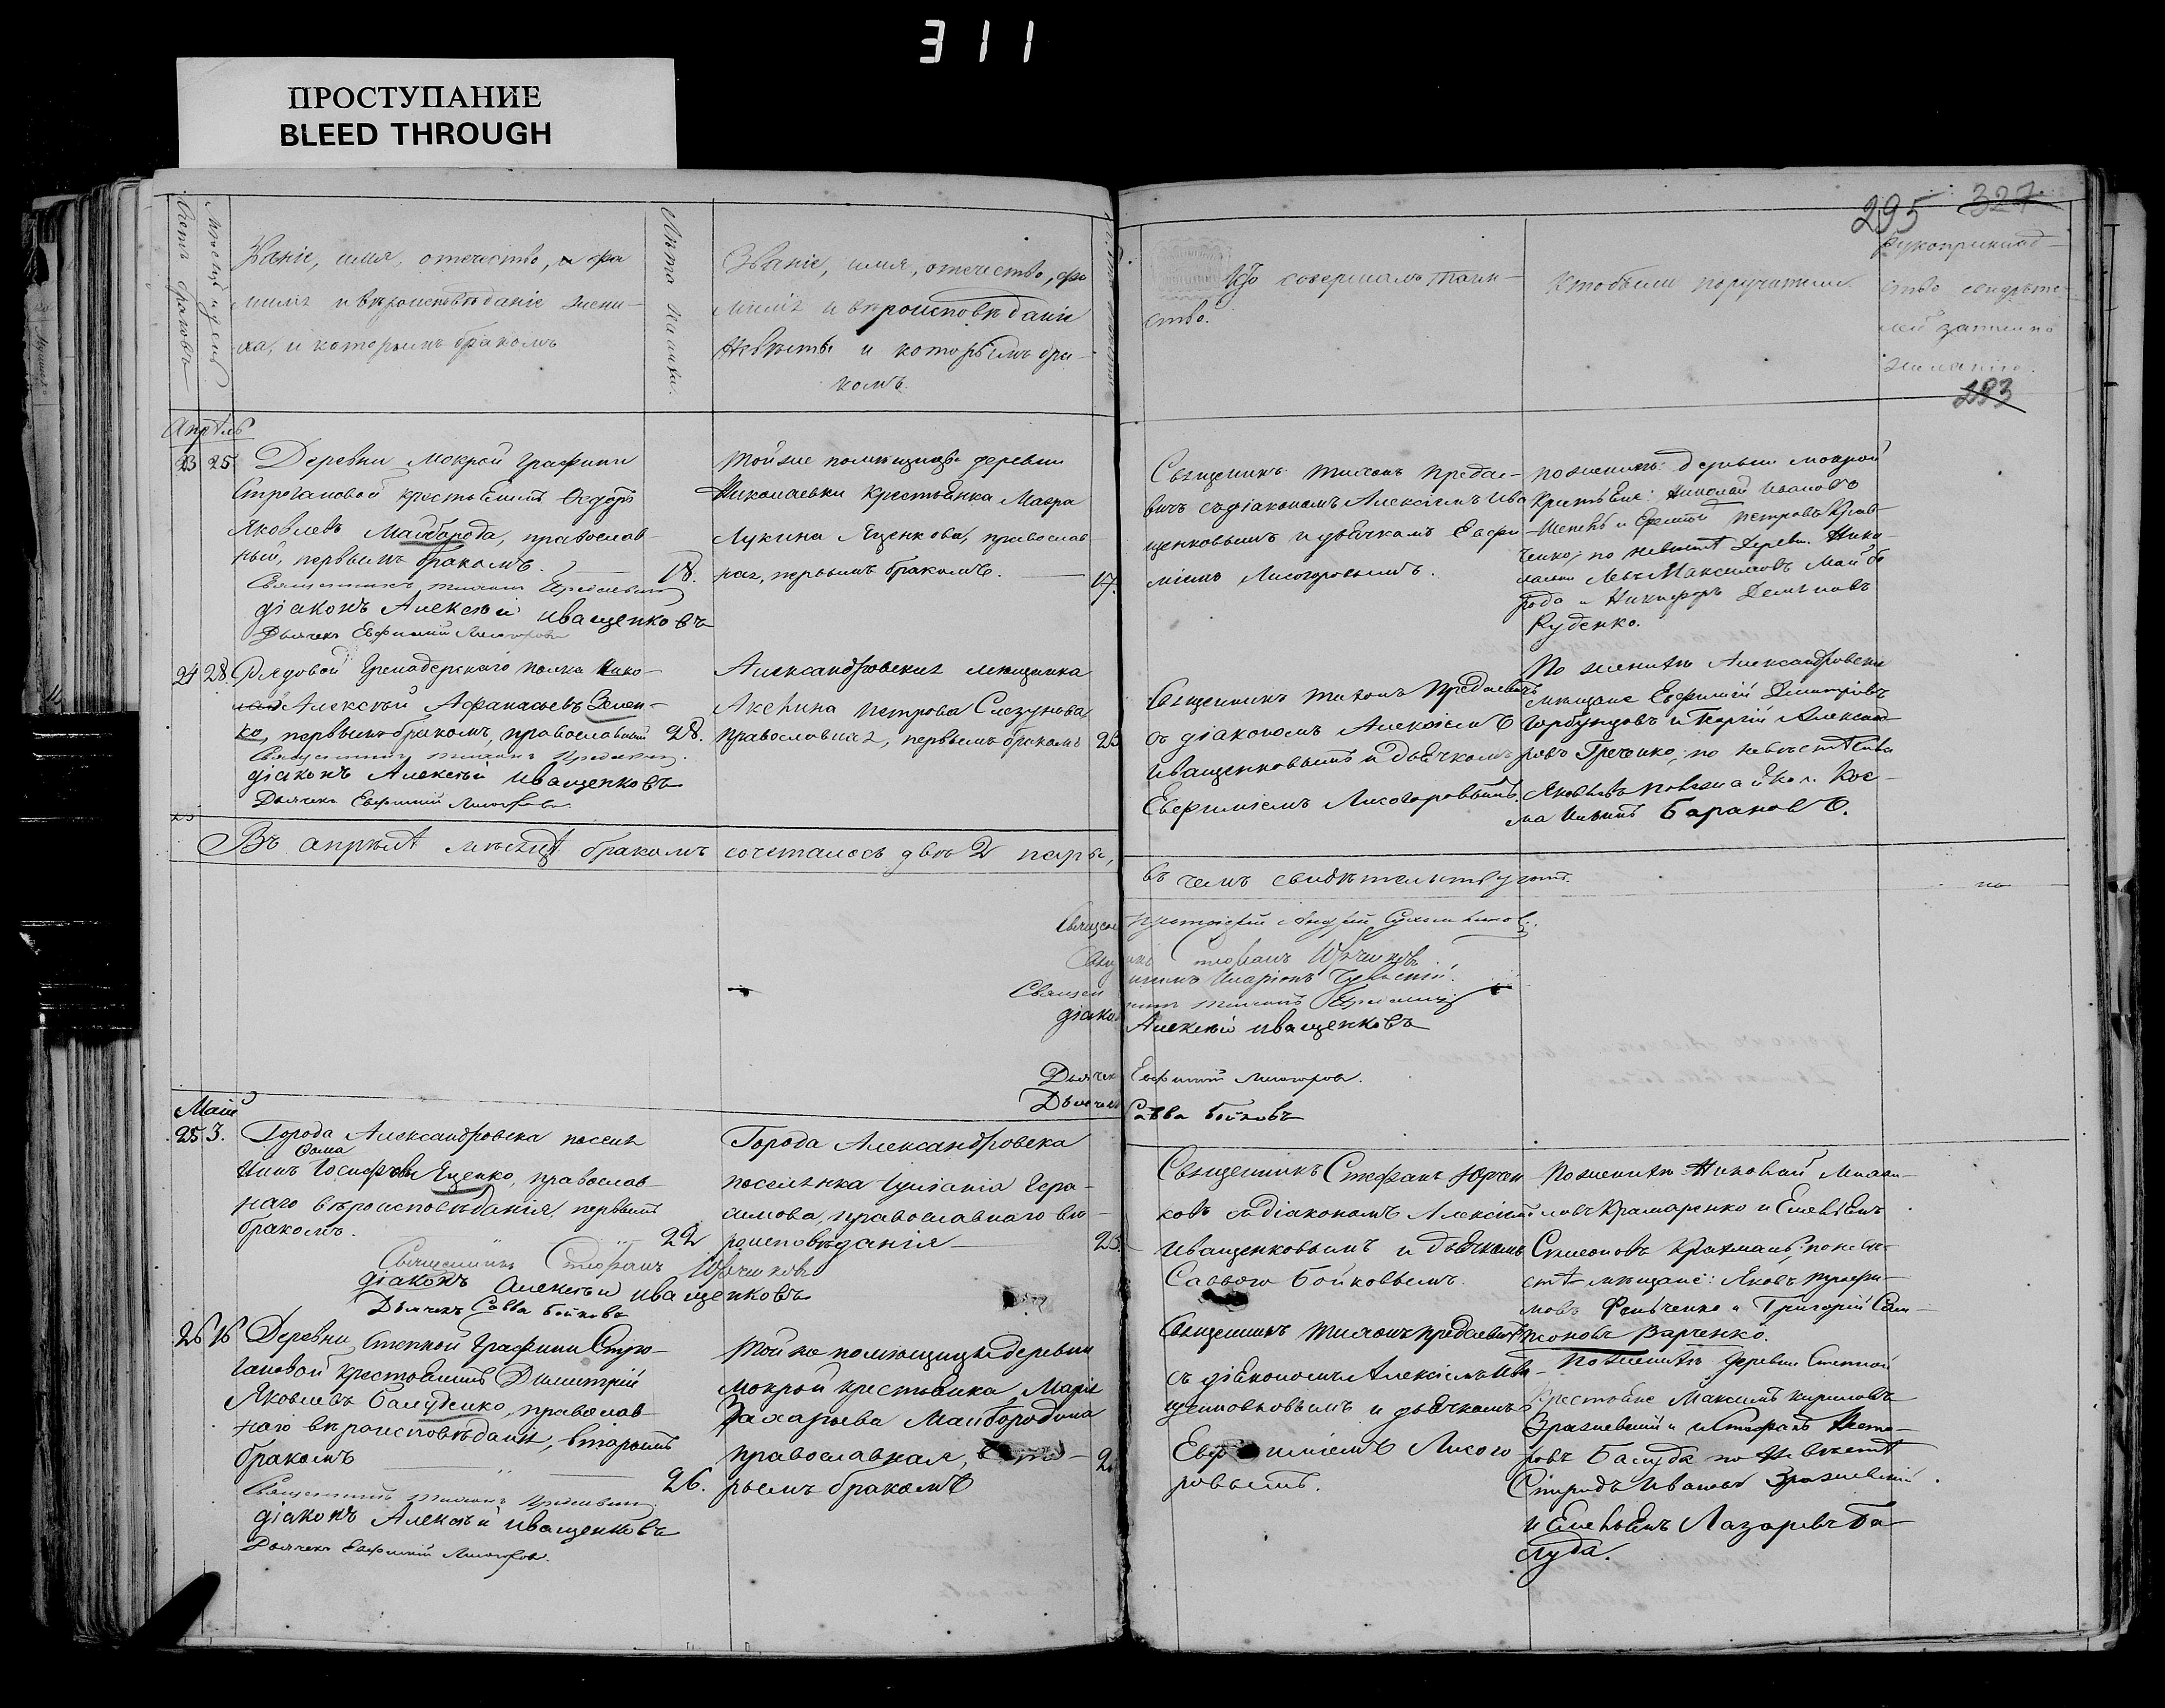 311
ПРОСТУПАНИЕ
BLEED THROUGH
295 327
Счетъ браковъ
Мѣсяцъ и день
Званіе, имя, отечество, и фа
милія и вѣроисповѣданіе жени-
ха, и которымъ бракомъ
Лѣта жениха.
Званіе, имя, отечество, фа
милія и вѣроисповѣданіе
невѣсты и которымъ бра-
комъ.
Кто совершалъ таин-
ство.
Кто были поручители
Рукоприклад-
ство свидѣте-
лей записи по
желанію.
293
Апрѣль
23 25 Деревни Мокрой Графини
Строгановой крестьянинъ Ѳедоръ
Яковлевъ Майборода, православ-
ный, первымъ бракомъ. 18.
Священникъ Тихонъ
діаконъ Алексѣй Иващенковъ
Дьячекъ Евфимий Лисогоровъ
Той же помѣщицы деревни
Николаевки крестьянка Мавра
Лукина Яценкова, православ
ная, первымъ бракомъ. 17.
Священникъ Тихонъ Предае-
вичъ съ діакономъ Алексіемъ Ива
щенковымъ и дьячкомъ Евфи-
міемъ Лисогоровымъ.
по женихѣ: деревни Мокрой
крестьяне: Николай Ивановъ
и Петровъ Крав-
ченко; по невѣстѣ дерев. Нико-
лаевки Левъ Максимовъ Майбо
рода и Никифоръ Демьяновъ
Руденко.
24 28. Рядовой Гренадерскаго полка Нико-
лай Алексѣй Афанасьевъ Зелен-
ко, первымъ бракомъ, православный 28.
Священникъ Тихонъ
діаконъ Алексѣй Иващенковъ
Дьячекъ Евфимий Лисогоровъ
Александровская мѣщанка
Акенина Петрова Слезунова
православная, первымъ бракомъ 25
Священникъ Тихонъ Предаевичъ
съ діакономъ Алексіемъ
Иващенковымъ и дьячкомъ
Евфиміемъ Лисогоровымъ.
По женихѣ Александровскіе
мѣщане Евфимій Дмитріевъ
Горбунцовъ и Георгій Александ-
ровъ Греченко; по невѣстѣ
Яковлевъ и Кос-
ма Барановъ.
Въ апрѣлѣ мѣсяцѣ бракомъ сочеталось двѣ 2 пары,
въ чемъ свидѣтельствуютъ.
Протоіерей Андрей
Священникъ Стефанъ Юрченковъ
Священникъ Иларіонъ
Священникъ Тихонъ
діаконъ Алексѣй Иващенковъ
Дьячекъ Евфимий Лисогоровъ.
Дьячекъ Савва Бойковъ
Маій
25 3. Города Александровска поселя
Ѳома
нинъ Іосифовъ Яценко, православ-
наго вѣроисповѣданія, первымъ
бракомъ. 22
Священникъ Стефанъ Юрченковъ
діаконъ Алексѣй Иващенковъ
Дьячекъ Савва Бойковъ
Города Александровска
поселянка Іуліанія Гера-
симова, православнаго вѣ-
роисповѣданія
Священникъ Стефанъ Юрчен
ковъ съ діакономъ Алексіемъ
Иващенковымъ и дьячкомъ
Саввою Бойковымъ.
По женихѣ: Николай Михаи-
ловъ Крамаренко и Емельянъ
Симеоновъ по невѣ-
стѣ мѣщане: Яковъ Трофи-
мовъ и Григорій Сам-
соновъ Варченко.
26 16 Деревни Степной Графини Стро-
гановой крестьянинъ Димитрій
Яковлевъ Балуденко, православ-
наго вѣроисповѣданія, вторымъ
бракомъ 26.
Священникъ Тихонъ
діаконъ Алексѣй Иващенковъ
Дьячекъ Евфимий Лисогоровъ.
Той же помѣщицы деревни
Мокрой крестьянка Марія
Захарьева Майбородина
православная, вто-
рымъ бракомъ
Священникъ Тихонъ Предаевичъ
съ діакономъ Алексіемъ Ива-
щенковымъ и дьячкомъ
Евфиміемъ Лисого
ровымъ.
По женихѣ деревни Степной
крестьяне Максимъ Кириловъ
Зражевскій и Стефанъ Несто-
ровъ Балуда по невѣстѣ
Спиридъ Ивановъ Зражевскій
и Емельянъ Лазаревъ Ба-
луда.